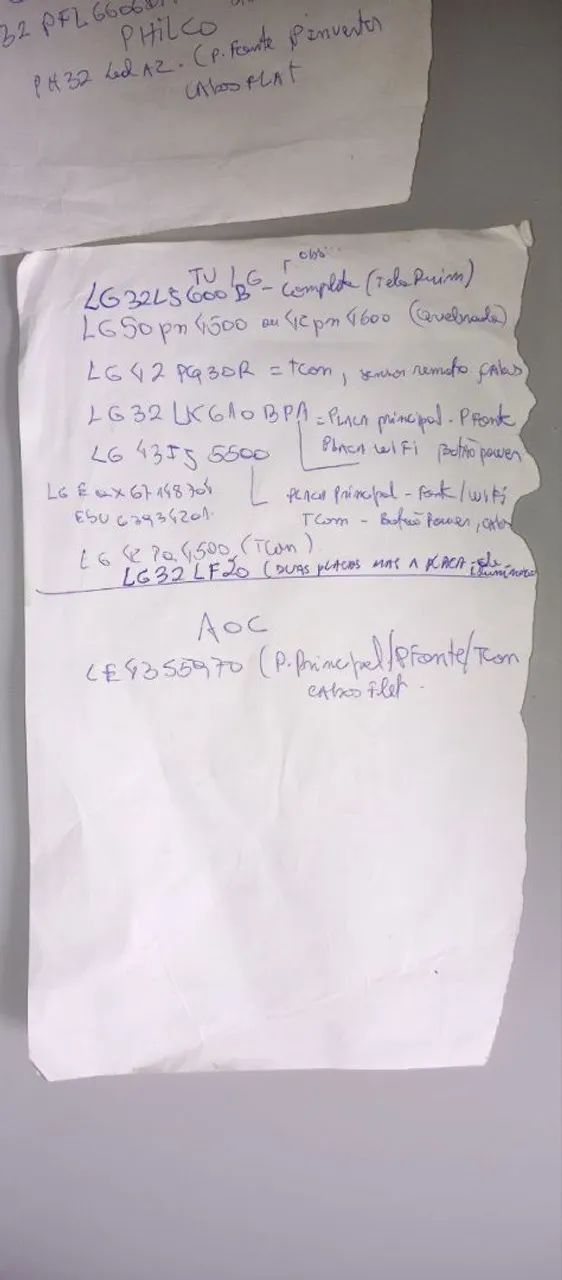 32 PFL6606
PHILCO
PH32 Led A2. (P. Fonte P inverter
CABOS FLAT
TV LG
LG32LS600B - Completa (Tela Ruim)
LG50pn4500 ou 42pn4600 (Quebrada)
LG42PQ30R = TCon, sensor remoto, CABOS
LG32LK610BPA = PLACA principal - P Fonte
PLACA WIFI Botão power
LG 43Jj 5500
PLACA Principal - Fonte / WiFi
LG E ax67148704
EBU63934201
TCom - Botão Power, Cabos
LG 42 PQ 4500, (TCon)
LG32 LF20 (DUAS PLACAS MAS A PLACA de iluminação
AOC
LE43S5970 (P.Principal/PFonte/TCon
CABOS Flet.